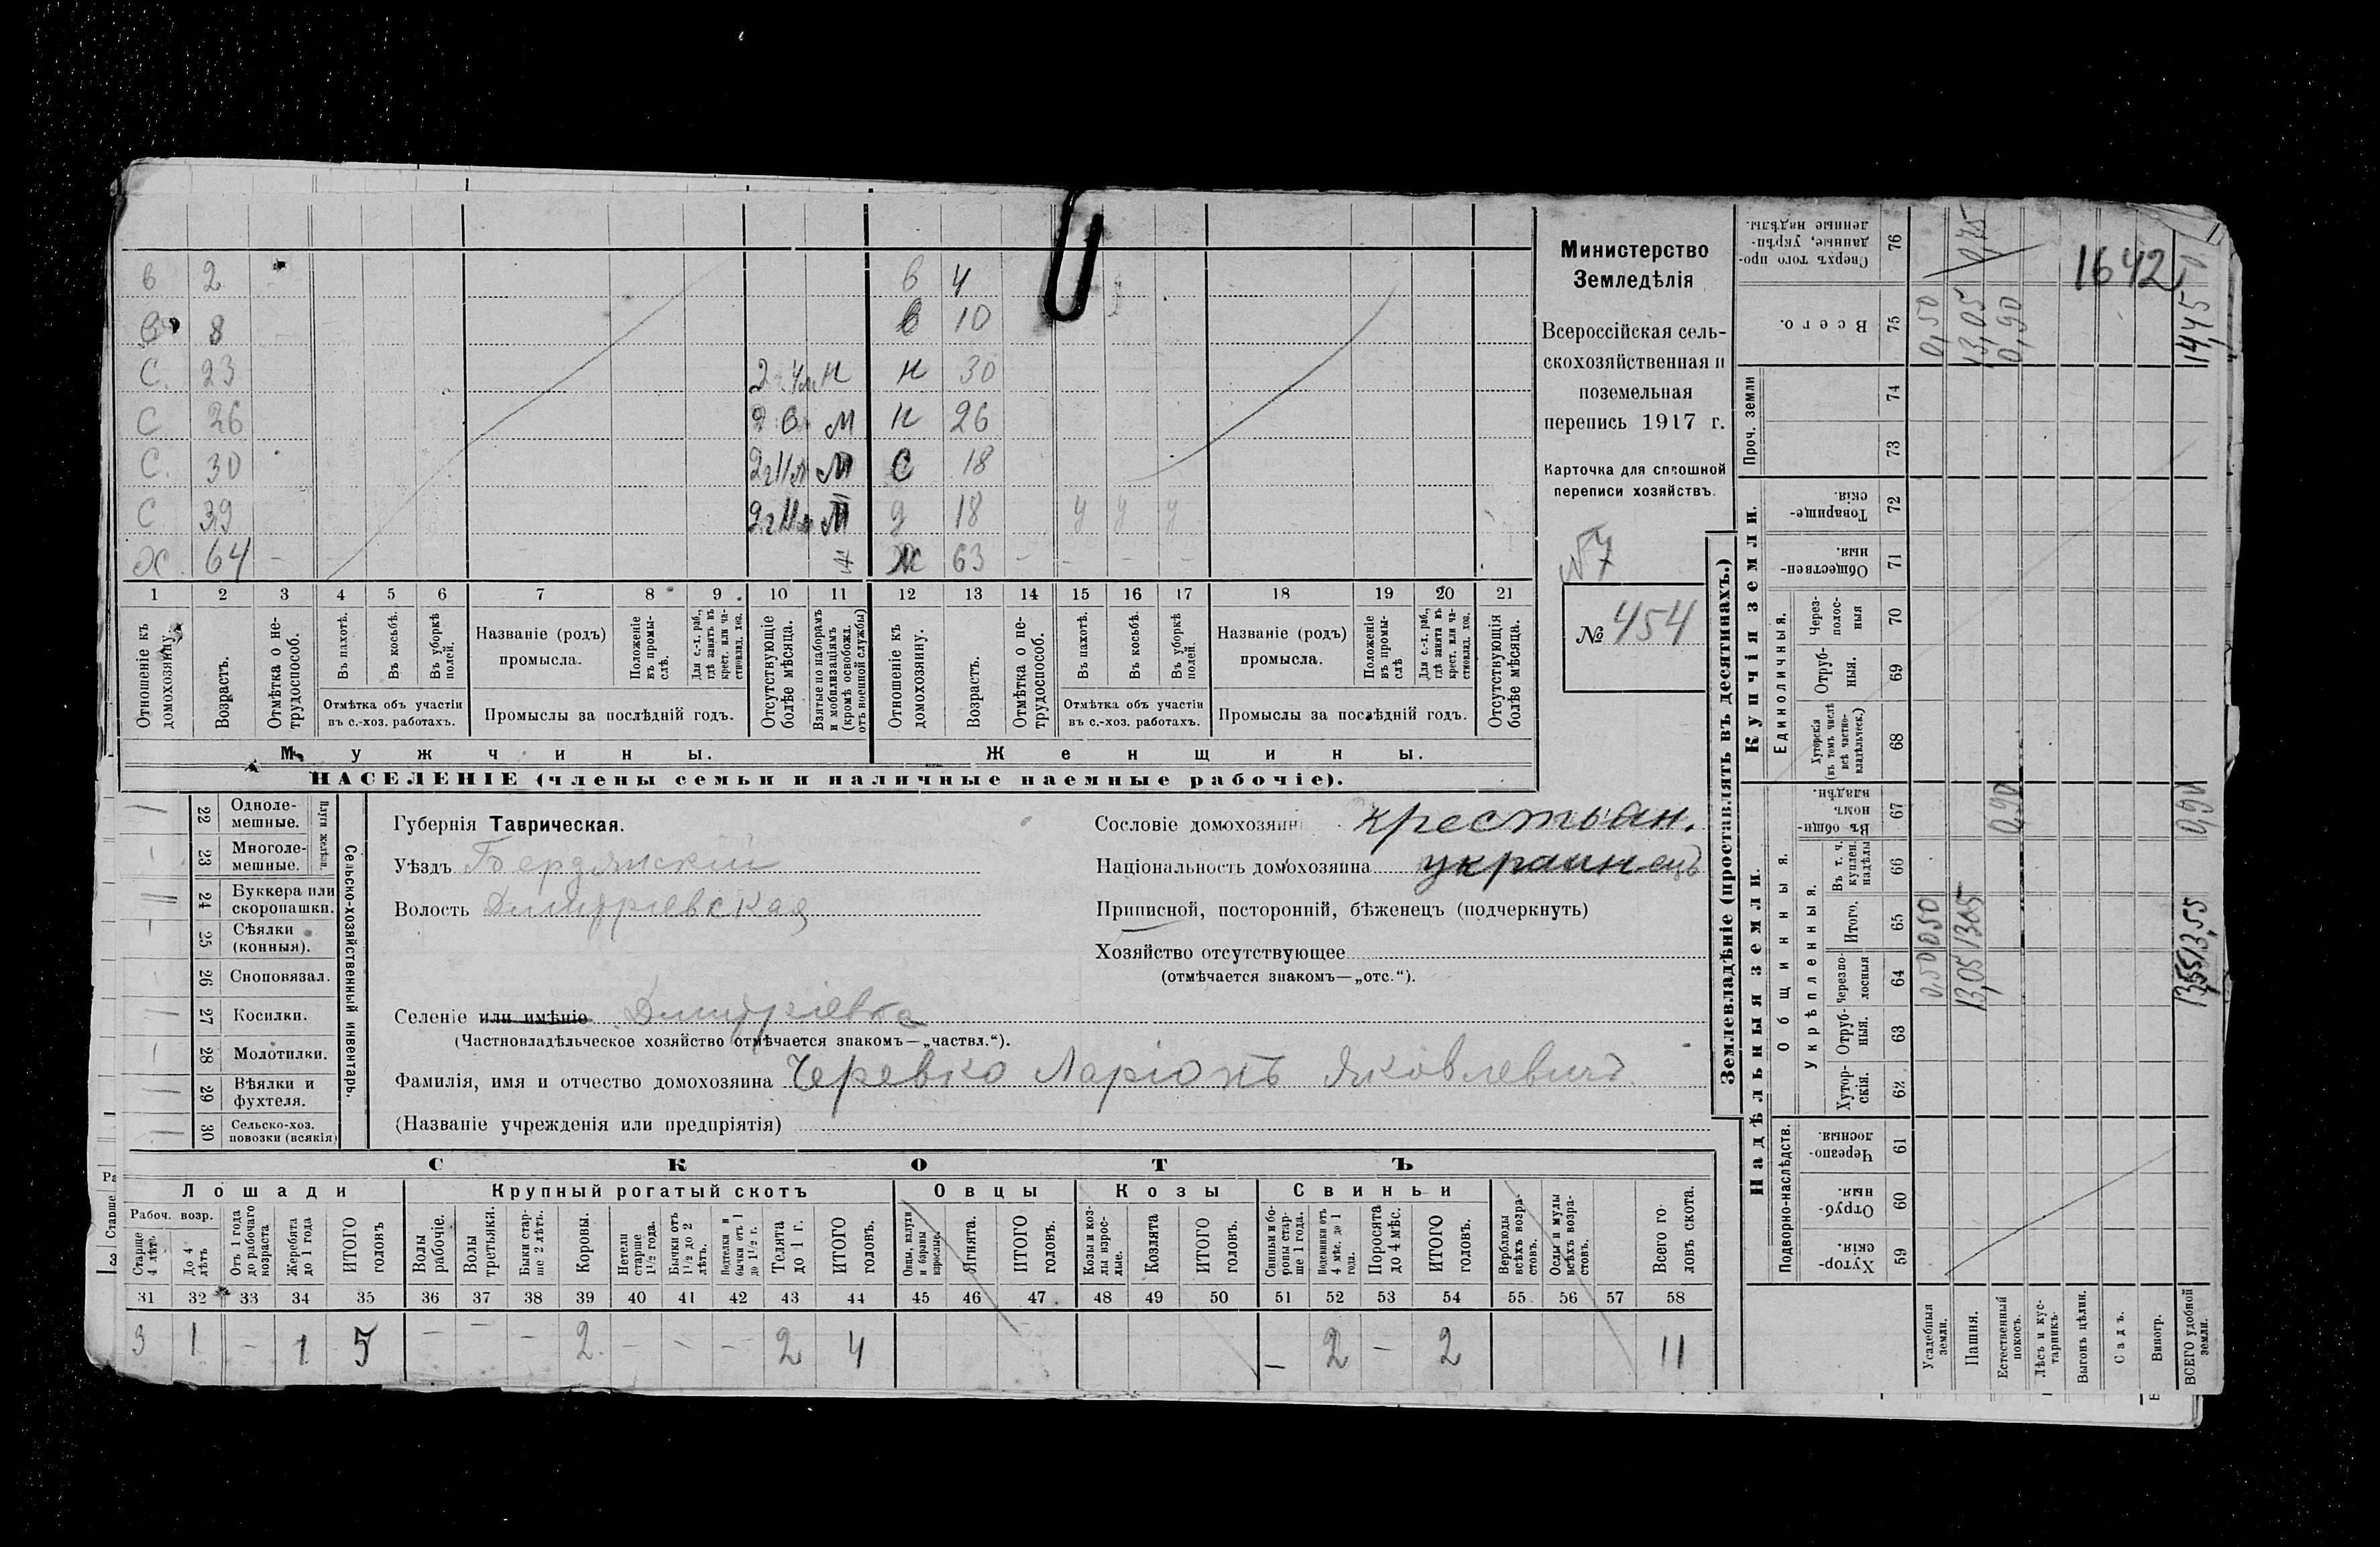 в 2 в 4
в 8 в 10
С. 23 н 30
С 26 М н 26
С. 30 2г 11м М С 18
С 39 2г 11м М д 18 у у у
Х. 64 - Ж 63 - - - -
1 2 3 4 5 6 7 8 9 10 11 12 13 14 15 16 17 18 19 20 21
Отношеніе къ домохозяину.
Возрастъ.
Отмѣтка о не-трудоспособ.
Въ пахотѣ.
Въ косьбѣ.
Въ уборкѣ полей.
Отмѣтка объ участіи въ с.-хоз. работахъ.
Названіе (родъ) промысла.
Положеніе въ промы-слѣ.
Для с.-х. раб., гдѣ занятъ въ крест. или ча-стновлад. хоз.
Промыслы за послѣдній годъ.
Отсутствующіе болѣе мѣсяца.
Взятые по наборамъ и мобилизаціямъ (кромѣ освобожд. отъ военной службы)
Отношеніе къ домохозяину.
Возрастъ.
Отмѣтка о не-трудоспособ.
Въ пахотѣ.
Въ косьбѣ.
Въ уборкѣ полей.
Отмѣтка объ участіи въ с.-хоз. работахъ.
Названіе (родъ) промысла.
Положеніе въ промы-слѣ
Для с.-х. раб., гдѣ занята въ крест. или ча-стновлад. хоз.
Промыслы за послѣдній годъ.
Отсутствующія болѣе мѣсяца.
Мужчины. Женщины.
НАСЕЛЕНІЕ (члены семьи и наличные наемные рабочіе).
Министерство
Земледѣлія
Всероссійская сель-
скохозяйственная и
поземельная
перепись 1917 г.
Карточка для сплошной
переписи хозяйствъ.
№ 454
22 Одноле-мешные.
23 Многоле-мешные.
Плуги желѣзн.
24 Буккера или скоропашки.
25 Сѣялки (конныя).
26 Сноповязал.
27 Косилки.
28 Молотилки.
29 Вѣялки и фухтеля.
30 Сельско-хоз. повозки (всякія)
Сельско-хозяйственный инвентарь.
Губернія Таврическая.
Уѣздъ Бердянскій
Волость Дмитріевская
Сословіе домохозяин крестьян.
Національность домохозяина украинецъ
Приписной, посторонній, бѣженецъ (подчеркнуть)
Хозяйство отсутствующее
(отмѣчается знакомъ—„отс.“).
Селеніе или имѣніе Дмитріевка
(Частновладѣльческое хозяйство отмѣчается знакомъ—„частвл.“).
Фамилія, имя и отчество домохозяина Черевко Ларіонъ Яковлевичъ
(Названіе учрежденія или предпріятія)
СКОТЪ
Лошади Крупный рогатый скотъ Овцы Козы Свиньи
Рабоч. возр.
Старше 4 лѣтъ.
До 4 лѣтъ
Отъ 1 года до рабочаго возраста
Жеребята до 1 года
ИТОГО головъ
Волы рабочіе.
Волы третьяки.
Быки стар-ше 2 лѣтъ.
Коровы.
Нетели старше 1½ года.
Бычки отъ 1½ до 2 лѣтъ.
Подтелки и бычки отъ 1 до 1½ г.
Телята до 1 г.
ИТОГО головъ.
Овцы, валухи и бараны взрослые.
Ягнята.
ИТОГО головъ.
Козы и коз-лы взрос-лые.
Козлята
ИТОГО головъ.
Свиньи и бо-ровы стар-ше 1 года.
Подсвинки отъ 4 мѣс. до 1 года.
Поросята до 4 мѣс.
ИТОГО головъ.
Верблюды всѣхъ возра-стовъ.
Ослы и мулы всѣхъ возра-стовъ.
Всего го-ловъ скота.
31 32 33 34 35 36 37 38 39 40 41 42 43 44 45 46 47 48 49 50 51 52 53 54 55 56 57 58
3 1 - 1 5 - - - 2 - - - 2 4 - 2 - 2 11
Землевладѣніе (проставлять въ десятинахъ.)
Надѣльныя земли. Купчія земли. Проч. земли
Подворно-наслѣдств. Общинныя. Единоличныя.
Укрѣпленныя.
Хутор-скія. 59
Отруб-ныя. 60
Черезпо-лосныя. 61
Хутор-скія. 62
Отруб-ныя. 63
Черезпо-лосныя 64
Итого. 65
Въ т. ч. куплен. надѣлы 66
Въ общин-номъ владѣн. 67
Хуторскія (въ томъ числѣ всѣ частно-владѣльческ.) 68
Отруб-ныя. 69
Через-полос-ныя 70
Обществен-ныя. 71
Товарище-скія. 72
73
74
Всего. 75
Сверхъ того про-данные, укрѣп-ленные надѣлы. 76
Усадебныя земли. 0,50 0,50 0,50
Пашня. 13,05 13,05 13,05
Естественный покосъ. 0,90 0,90
Лѣсъ и кус-тарникъ.
Выгонъ цѣлин.
Садъ.
Виногр.
ВСЕГО удобной земли. 13,55 13,55 0,90 14,45
1642